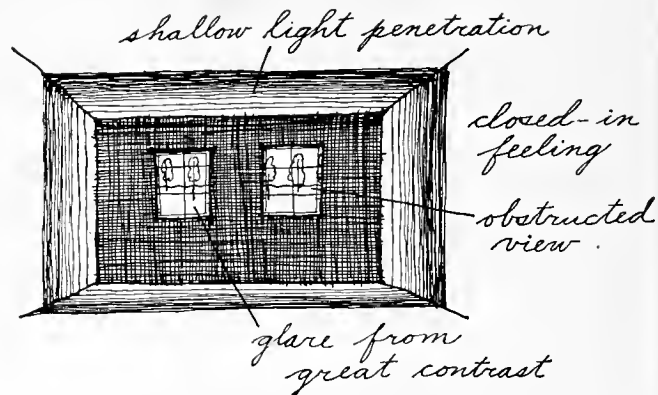 shallow light penetration
closed-in
feeling
obstructed
view.
glare from
great contrast